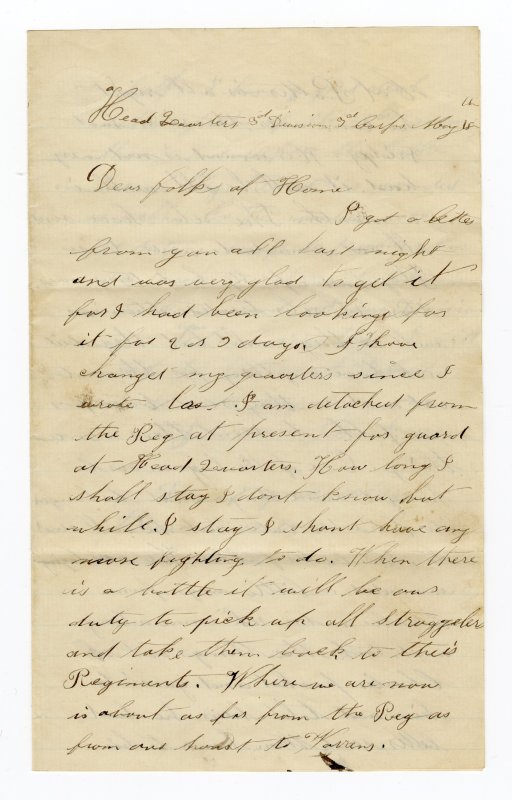 Head Quarters 3d Division 3d Corps May 18th
Dear folks at Home
I got a letter
from you all last night
and was very glad to get it
for I had been looking for
it for 2 or 3 days. I have
changet my quarters since I
wrote las. I am detached from
the Reg at present for guard
at Head Quarters. How long I
shall stay I dont know but
while I stay I shant have any
more fighting to do. When there
is a battle it will be our
duty to pick up all straggeler
and take them back to their
Regiments. Where we are now
is about as far from the Reg as
from our house to Warrens.